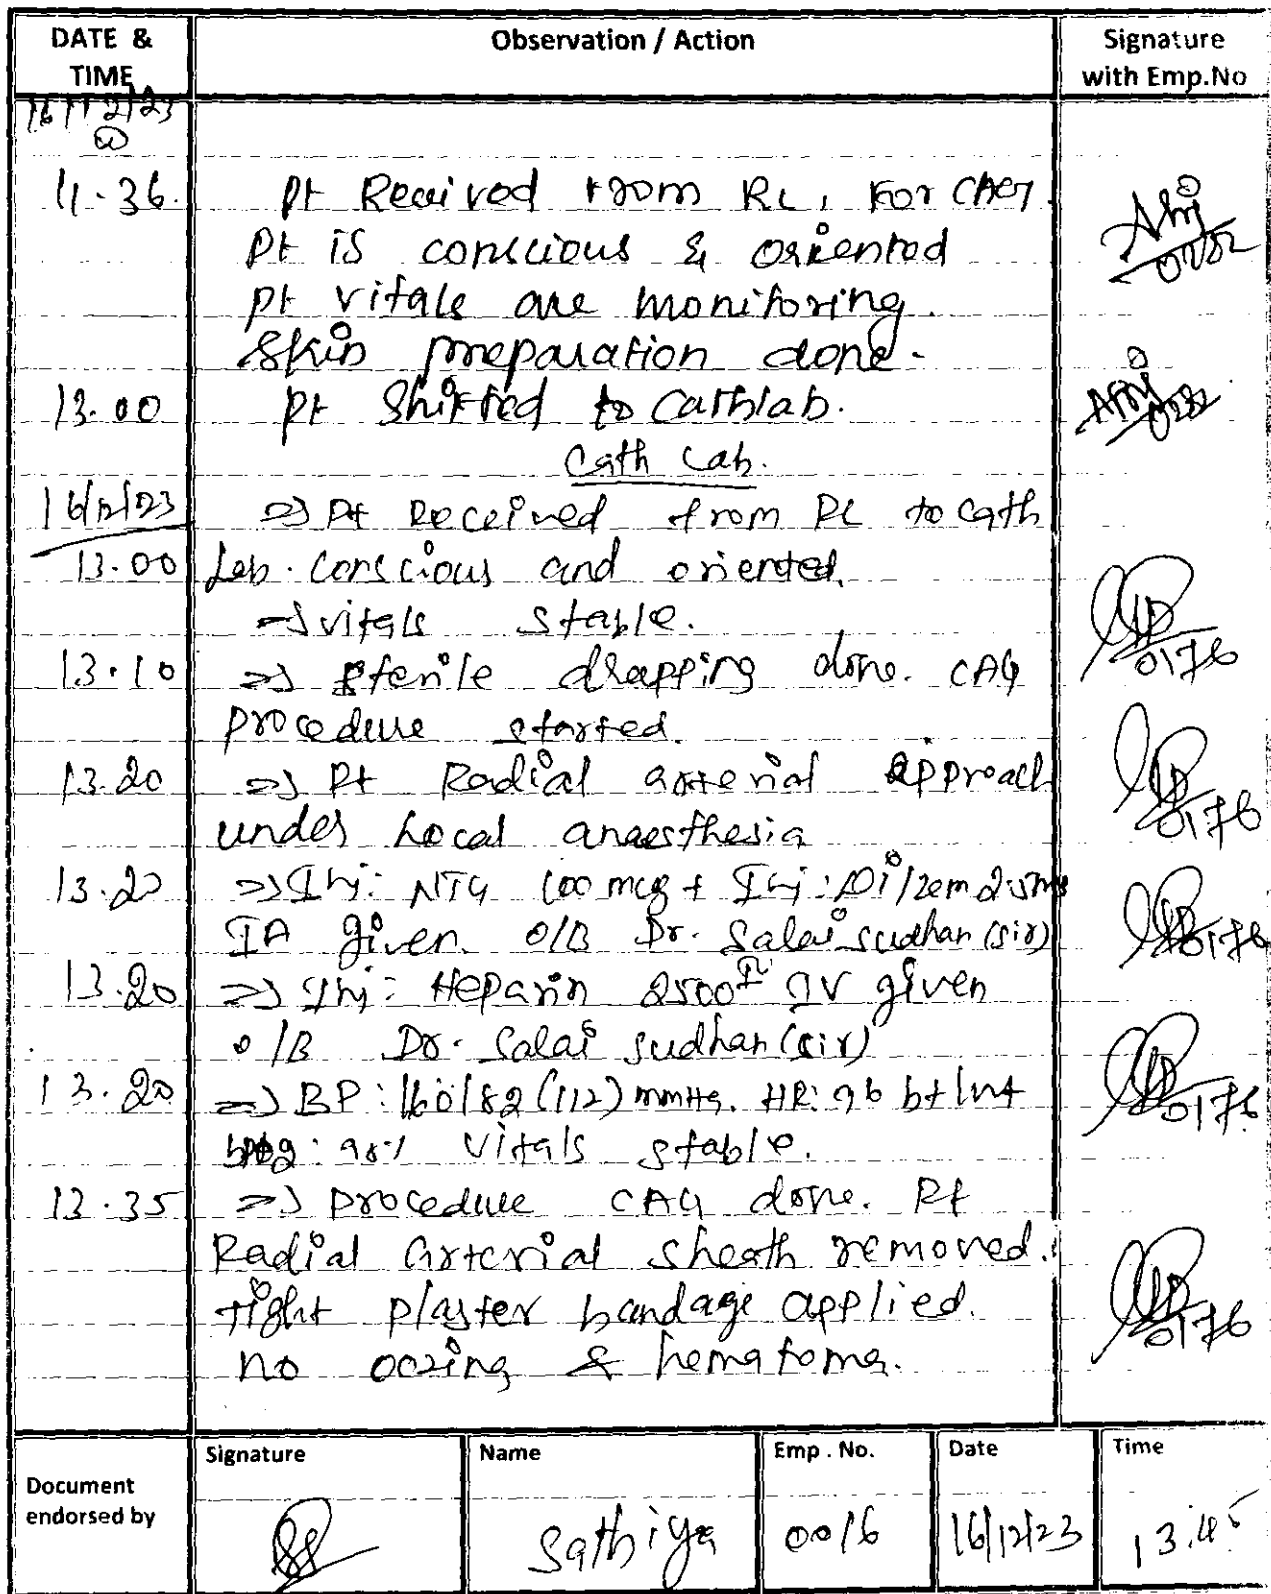 DATE & TIME Observation / Action Signature with Emp.No
16/12/23
@
11.36. Pt Received from RL, For CAG.
Pt is conscious & oriented
pt vitals are monitoring.
Skin preparation done.
13.00 Pt Shifted to Cathlab.
Cath Lab.
16/12/23 ⇒ Pt Received from RL to Cath
13.00 Lab. Conscious and oriented.
⇒ vitals stable. 0176
13.10 ⇒ Sterile drapping done. CAG
procedure started.
13.20 ⇒ Rt Radial arterial approach
under Local anaesthesia 0176
13.20 ⇒ Inj: NTG 100 mcg + Inj: Dilzem 2.5mg
IA given. O/B Dr. Salai sudhan (sir) 0176
13.20 ⇒ Inj: Heparin 2500 IV given
O/B Dr. Salai sudhan (sir)
13.20 ⇒ BP: 160/82 (112) mmHg. HR: 96 bt/mt 0176
98% vitals stable.
13.35 ⇒ procedure CAG done. Rt
Radial arterial sheath removed.
Tight plaster bandage applied. 0176
no oozing & hematoma.
Document endorsed by Signature Name Emp . No. Date Time
Sathiya 0016 16/12/23 13.45